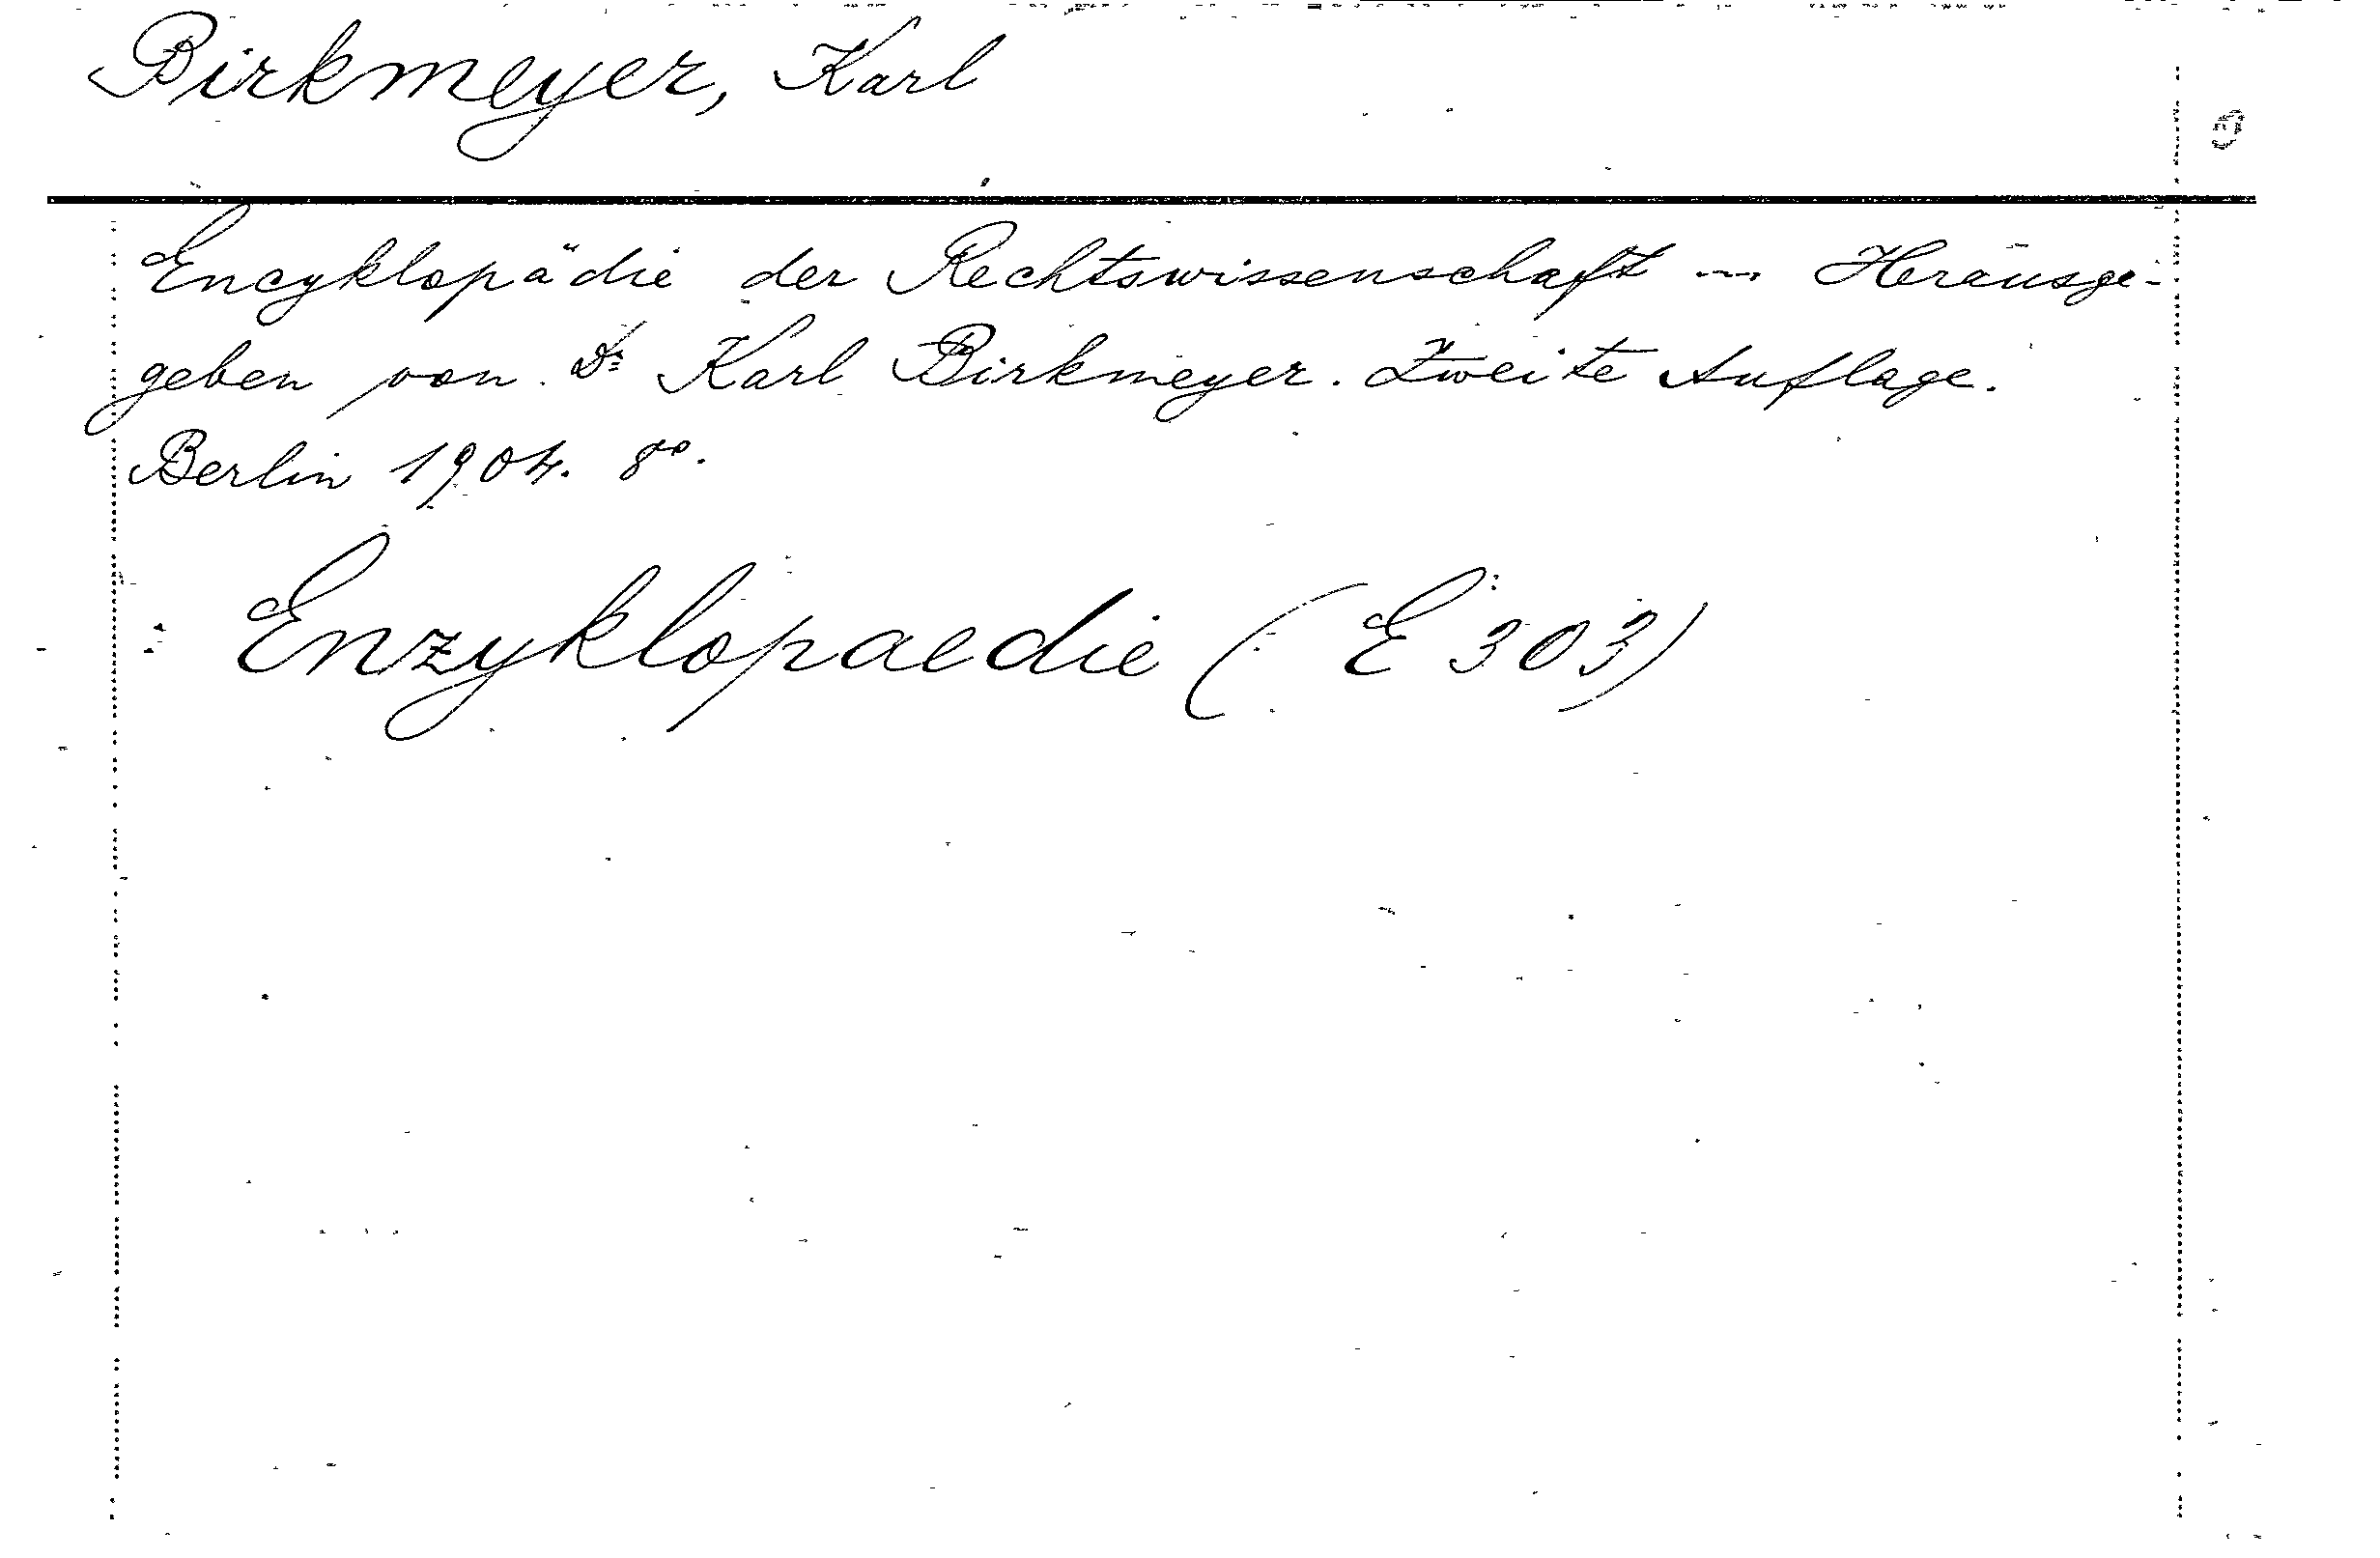 Birkmeyer, Karl
Encyklopädie der Rechtswissenschaft ... Herausge-
geben von Dr Karl Birkmeyer. Zweite Auflage.
Berlin 1904. 8°.
Enzyklopaedie (E 303)